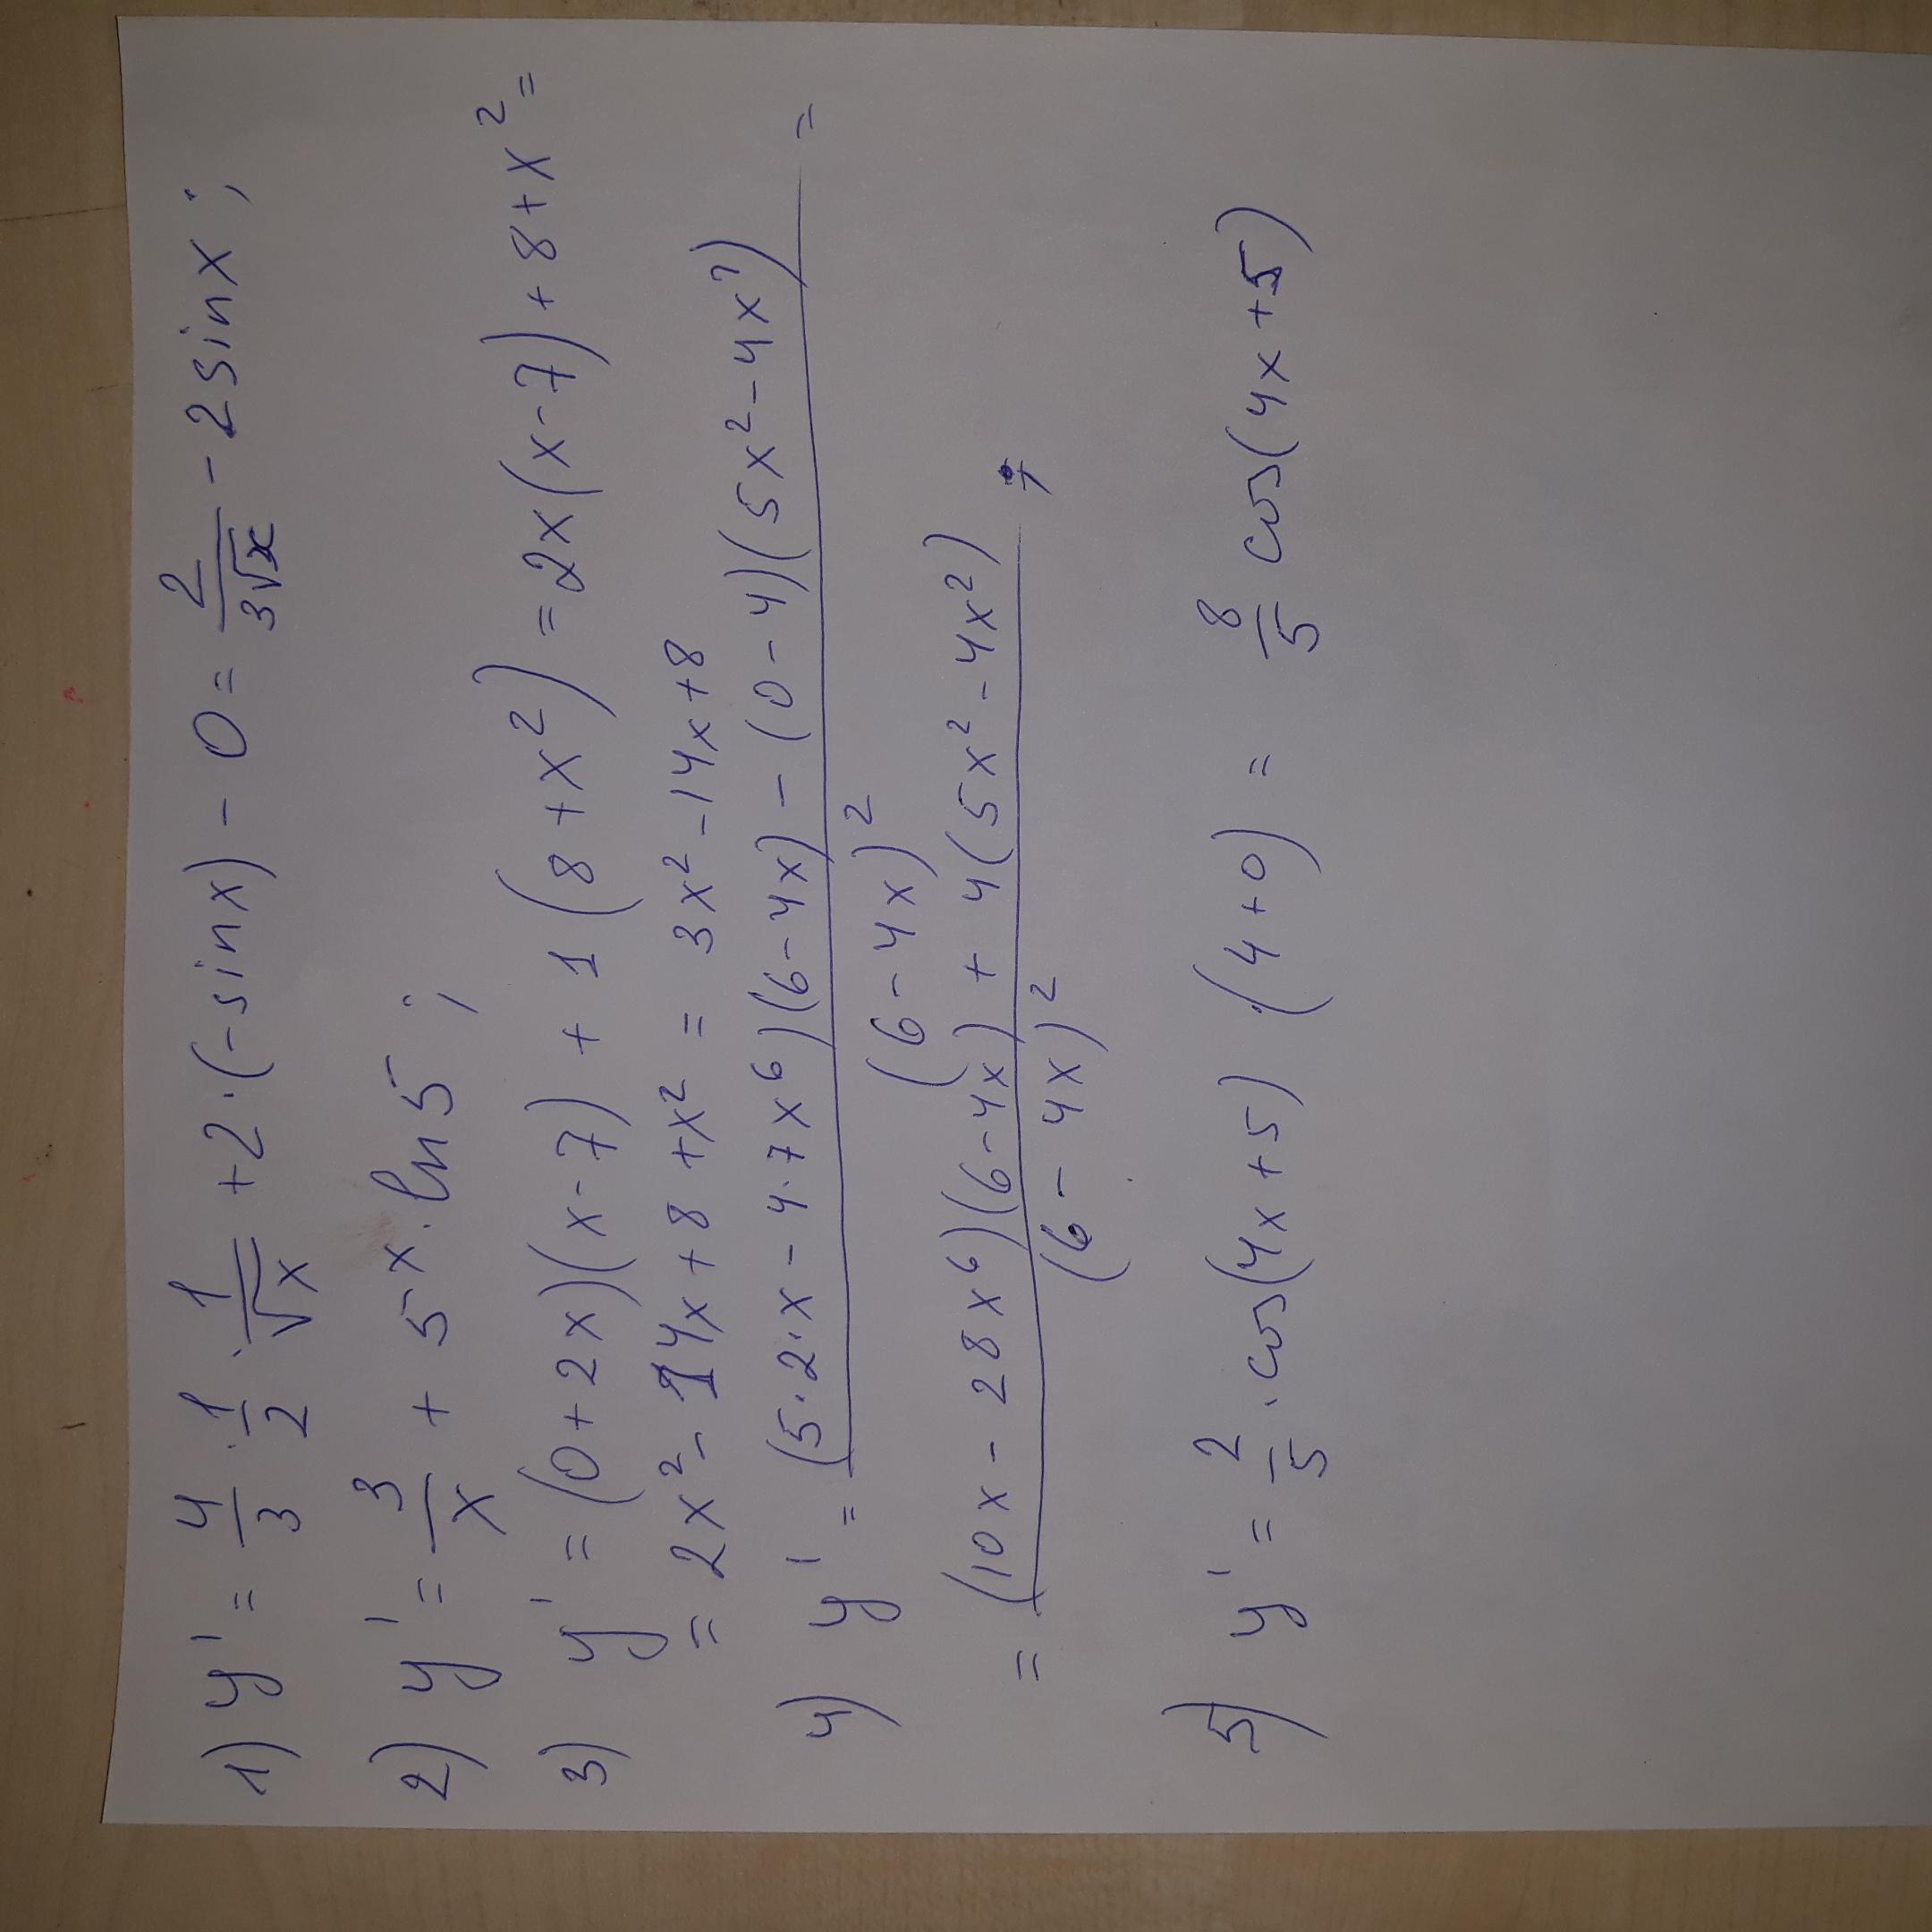 1) y' = 4/3 · 1/2 · 1/√x + 2·(-sinx) - 0 = 2/(3√x) - 2sinx;
2) y' = 3/x + 5^x · ln5;
3) y' = (0+2x)(x-7) + 1(8+x²) = 2x(x-7)+8+x² =
= 2x² - 14x + 8 + x² = 3x² - 14x + 8
4) y' = (5·2·x - 4·7x⁶)(6-4x) - (0-4)(5x²-4x⁷) / (6-4x)² =
= (10x - 28x⁶)(6-4x) + 4(5x² - 4x²) / (6-4x)² ;
5) y' = 2/5 · cos(4x+5) · (4+0) = 8/5 cos(4x+5)